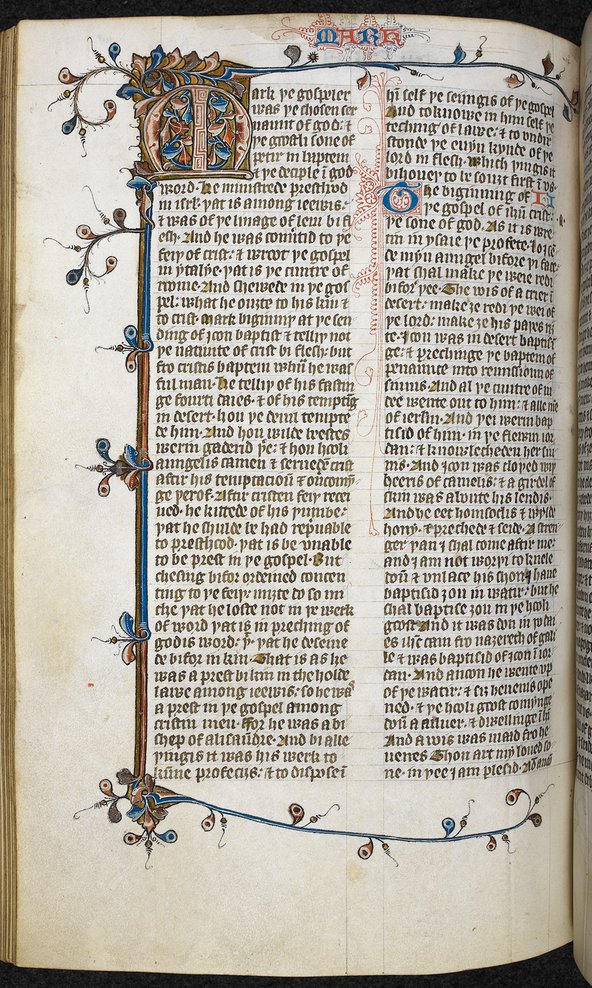 MARK
Mark ye gospeler
was ye chosen ser
uaunt of god: ⁊
ye gostli sone of
petir in baptem
⁊ ye deciple ī god
word· he ministrede presthod
in isrl· yat is among iewis·
⁊ was of ye linage of leui bi fl
esh· And he was to ye
feiy of crist: ⁊ wroot ye gospel
in ytalye· yat is ye cuntre of
rome· And shewede in ye gos
pel: what he ouzte to his kin ⁊
to crist· Mark biginniy at ye sen
ding of ioon baptist ⁊ telliy not
ye natiuite of crist bi flesh: but
fro cristis baptem whan he was
ful man· he telliy of his fastin
ge fourti daies· ⁊ of his temptīg
in desert· hou ye deuil tempte
de him· And hou wilde beestes
werin gaderid yere: ⁊ hou hooli
aungelis camen ⁊ crist
aftir his temptacioū ⁊
ge yerof· Aftir cristen feiy recei
ued· he kittede of his yumbe·
yat he shulde be had repuable
to presthod· yat is be vnable
to be prest in ye gospel· But
chesing bifor ordeined concen
ting to ye feiy· mizte do so mi
che yat he loste not in ye werk
of word yat is in preching of
godis word· y· yat he deserue
de bifor in kin· That is as he
was a prest bi kin in the holde
lawe among iewis: so he was
a prest in ye gospel among
cristin men· For he was a bi
shep of alisaūdre· And bi alle
yingis it was his werk to
kūne profecies: ⁊ to dispose ī
him self ye seiingis of ye gospel
And to knowe in him self ye
teching of lawe: ⁊ to vndir
stonde ye euyn kynde of ye
lord in flesh· which yingis it
bihouey to be souzt first ī vs·
The biginning of
ye gospel of ihū crist·
ye sone of god· As it is wre
tin in ysaie ye profete· lo i sē
de myn aungel bifore yi face·
yat shal make ye weie redi
bifor yee· The vois of a crier ī
desert· make ze redi ye wei of
ye lord: make ze his payes rīz
te· Joon was in desert baptisī
ge: ⁊ prechinge ye baptem of
penaunce into remissioun of
sinnis· And al ye cuntre of iu
dee wente out to him: ⁊ alle mē
of ierlm· And yei werin bap
tisid of him· in ye flewm ior
dan: ⁊ knowlecheden her sin
nis· And ioon was cloyed wiy
heeris of camelis: ⁊ a girdel of
skin was aboute his lendis·
And he eet honisoclis ⁊ wylde
hony· ⁊ prechede ⁊ seide· A stren
ger yan i shal come aftir me:
and i am not woryi to knele
doū ⁊ vnlace his shon· I haue
baptisid zou in watir: but he
shal baptise zou in ye hooli
goost· And it was don in yo dai
es ihc cam fro nazereth of gali
le ⁊ was baptisid of ioon ī ior
dan· And anoon he wente vp
of ye watir: ⁊ siz heuenis ope
ned· ⁊ ye hooli goost comynge
doū a culuer: ⁊ dwellinge ī hī
And a vois was maad fro he
uenes Thou art my loued so
ne· in yee i am plesid· And anon